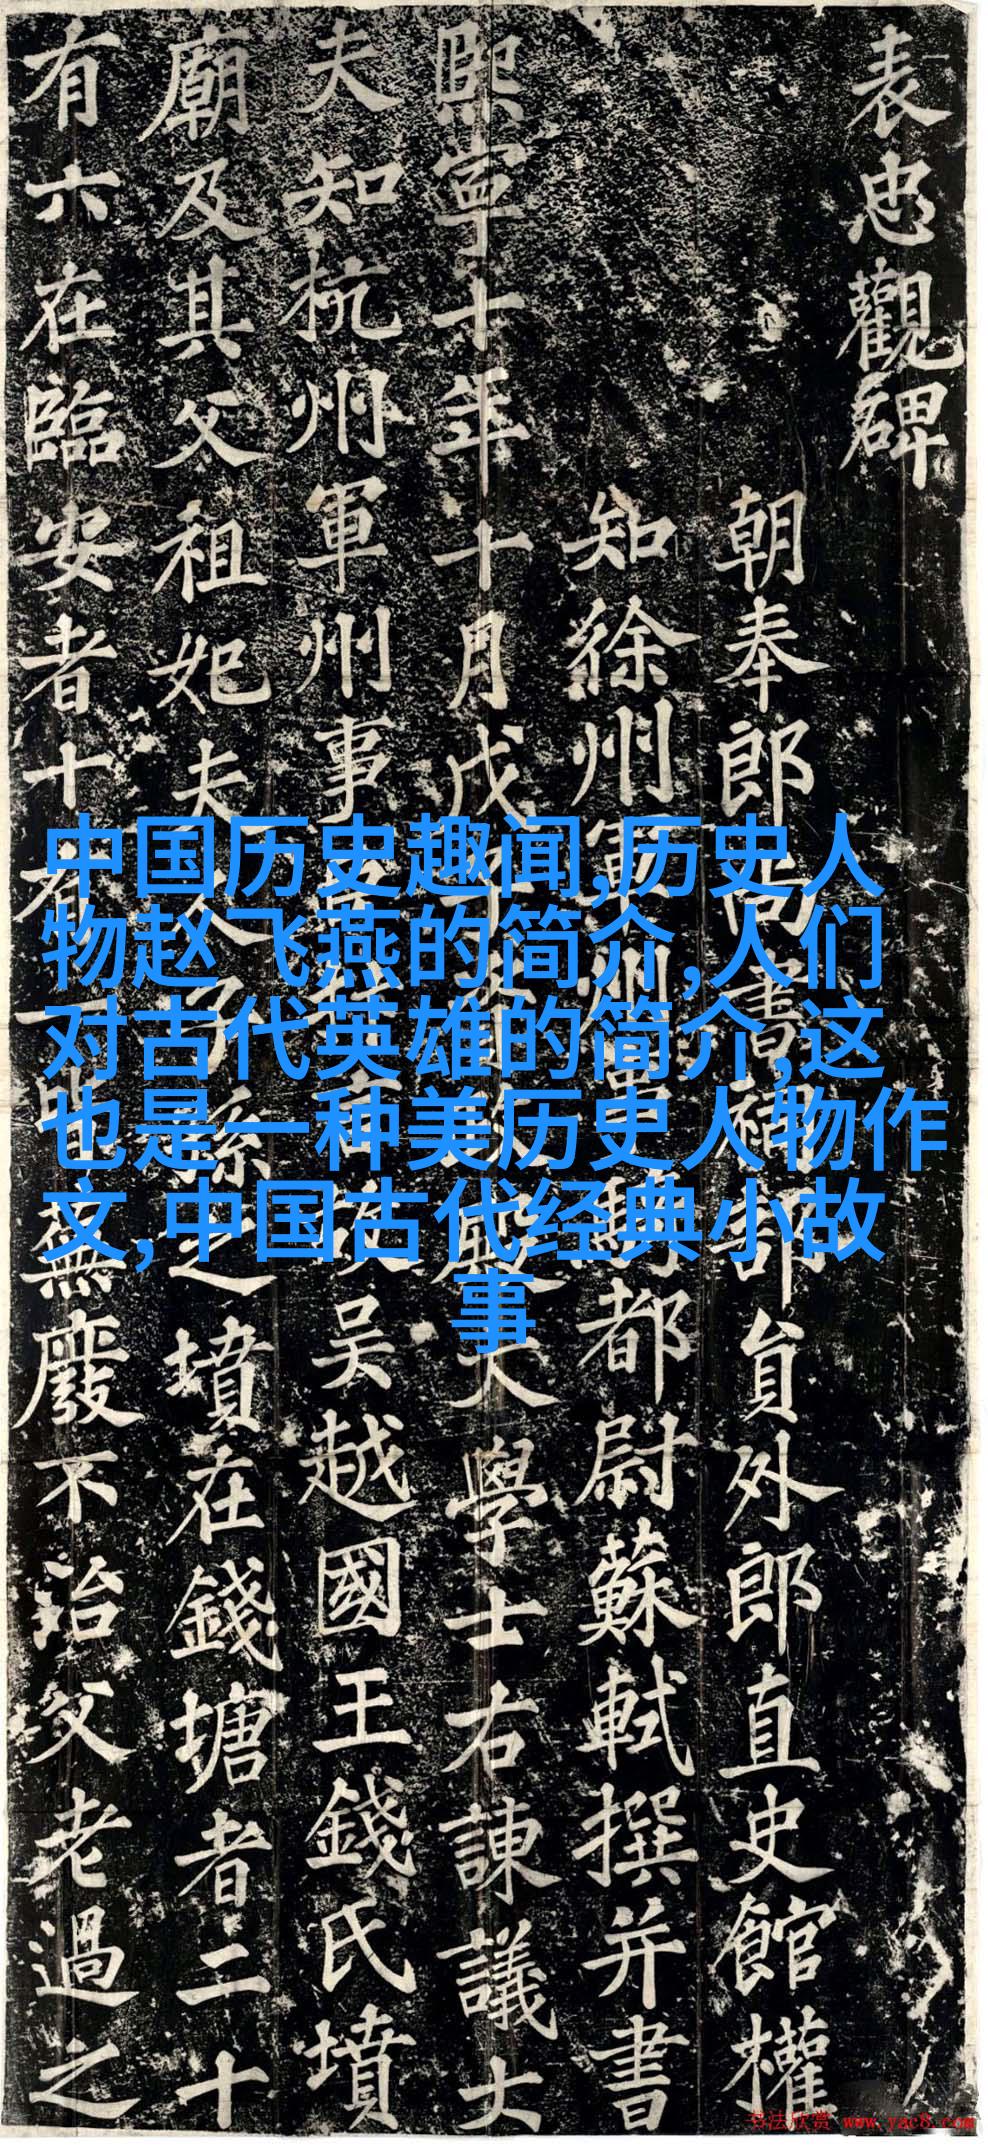 表忠觀碑
朝奉郎尚書祠部員外郎直史館權
知徐州軍州騎都尉蘇軾撰并書
熙寧十年十月戊子殿大學士右諫議大
夫知杭州軍州事故吳越國王錢氏墳
廟及其父祖妃夫人子孫之墳在錢塘者二十
有六在臨安者十有一皆蕪廢不治父老過之
中国历史趣闻,历史人
物赵飞燕的简介,人们
对古代英雄的简介,这
也是一种美历史人物作
文,中国古代经典小故
事
书法欣赏 www.yac8.com